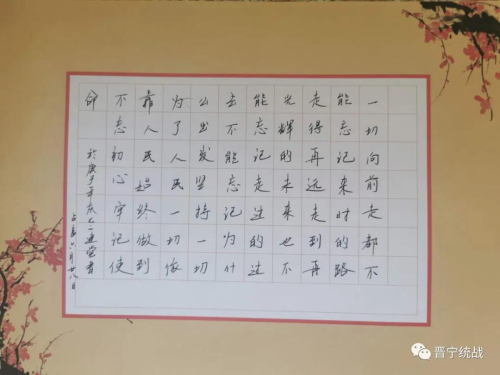 一切向前走都不
能忘记来时的路
走得再远走到再
光辉的未来也不
能忘记走过的过
去不能忘记为什
么出发坚持一切
为了人民一切依
靠人民始终做到
不忘初心牢记使
命
于庚子年庆七一建党书
六月廿八日
晋宁统战